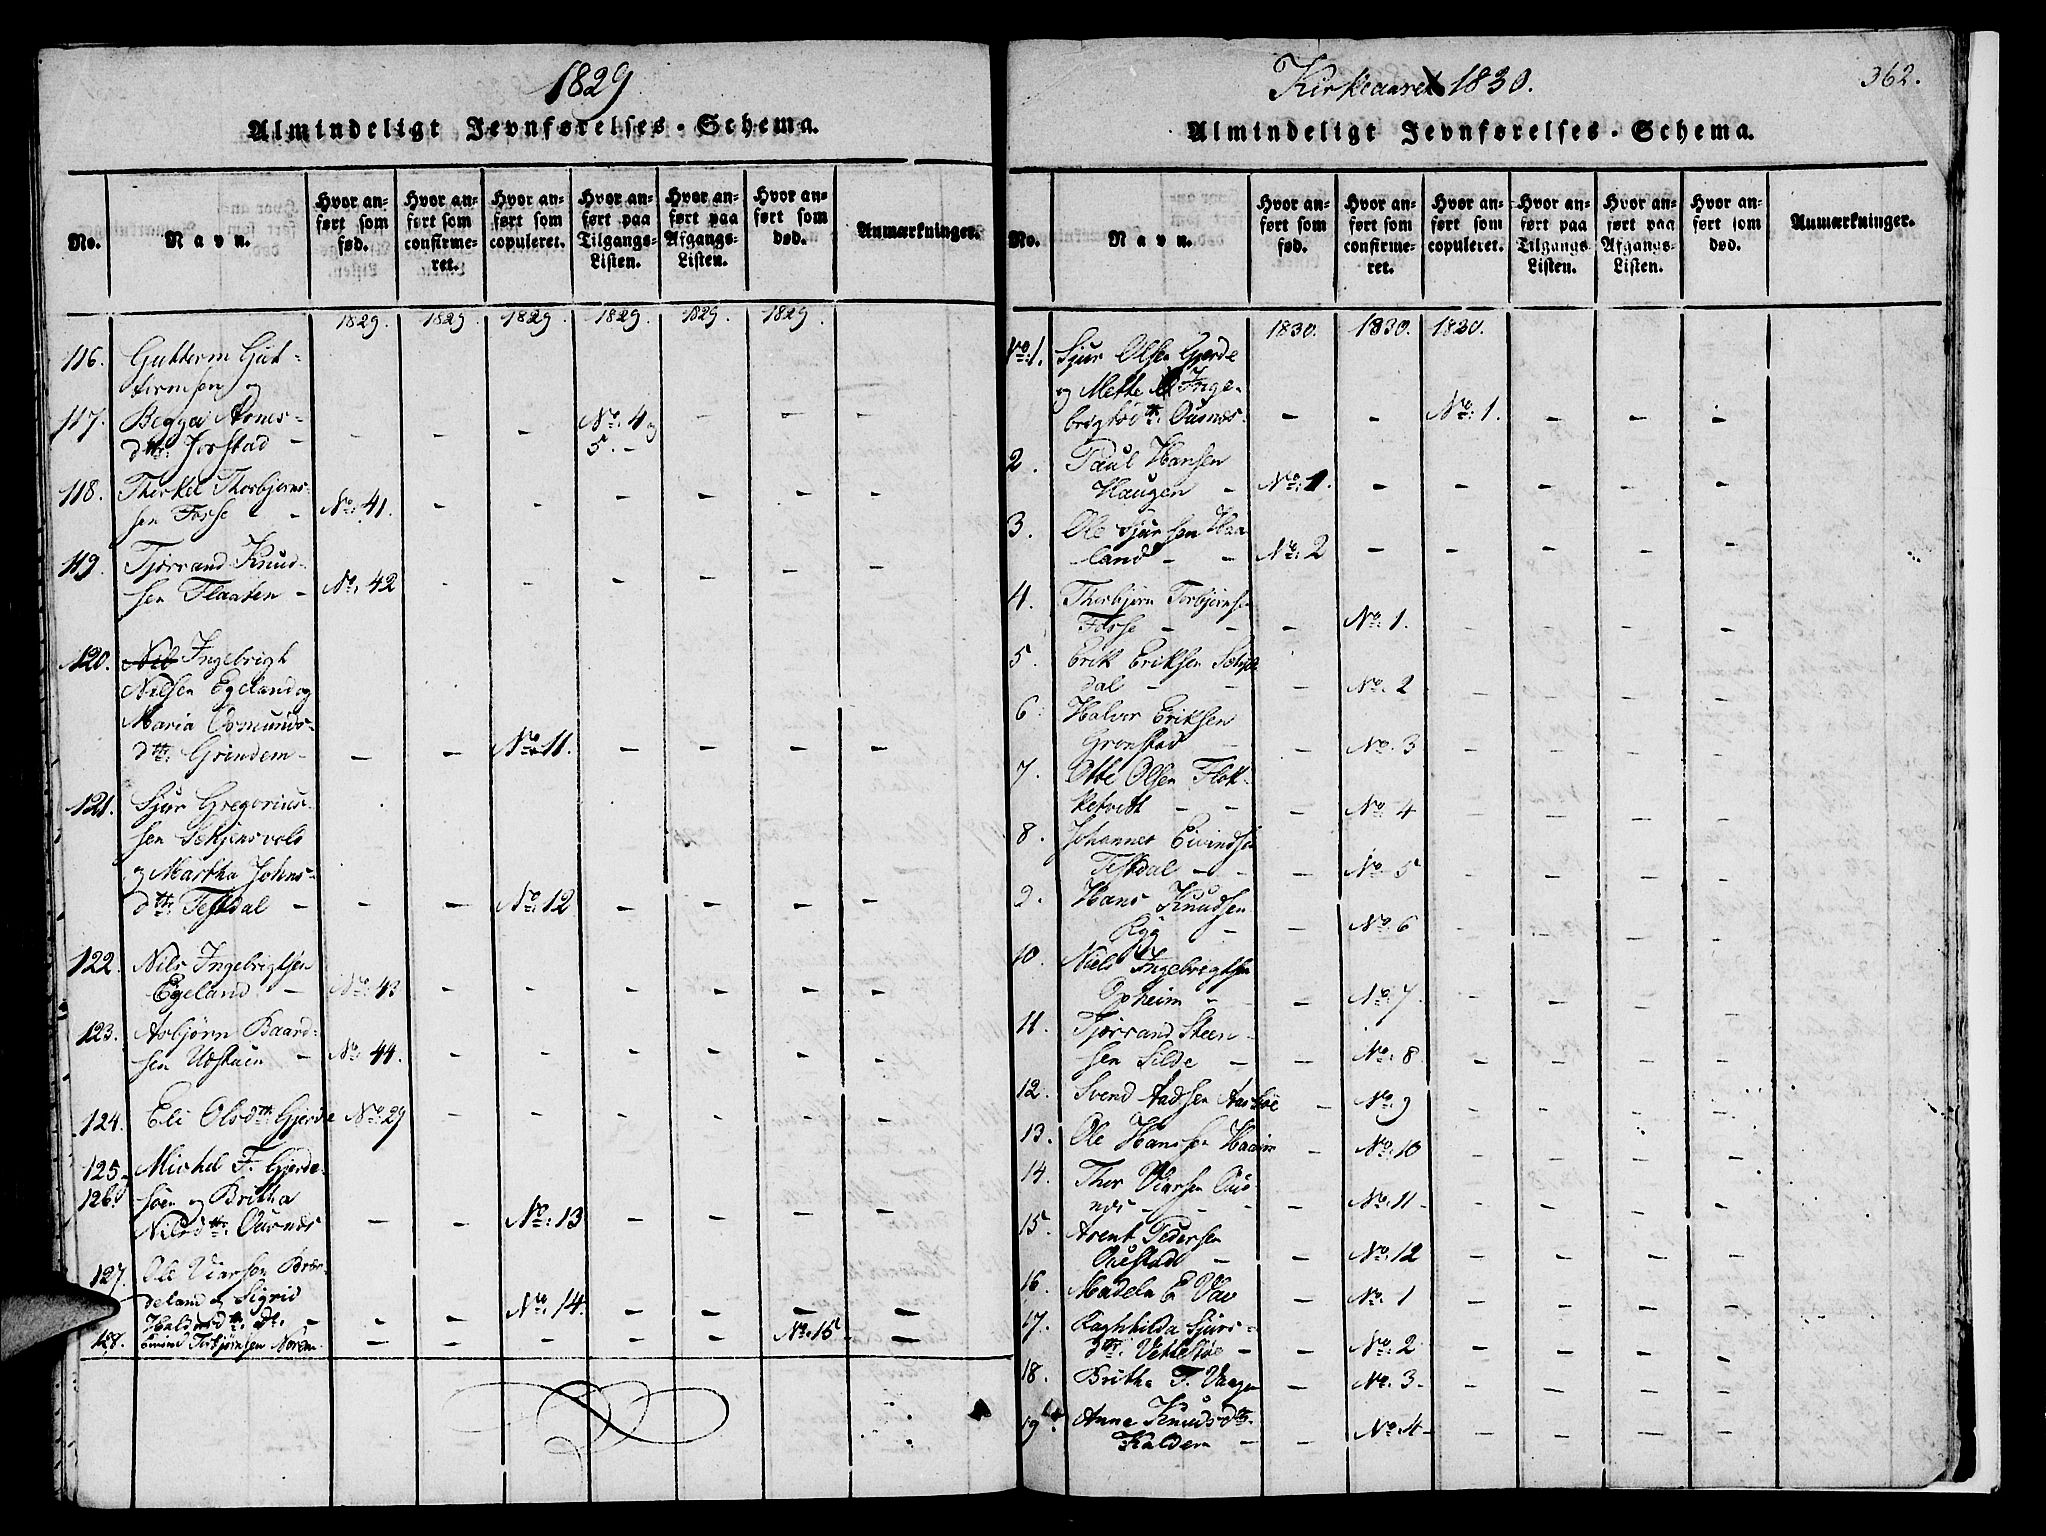 1829
Almindeligt Jevnførelses-Schema.
No.
Navn.
Hvor anført som fød.
Hvor anført som confirmeret.
Hvor anført som copuleret.
Hvor anført paa Tilgangs-Listen.
Hvor anført paa Afgangs-Listen.
Hvor anført som død.
Anmærkninger.
1829. 1829. 1829. 1829. 1829. 1829.
116. Gutterm Gut-
tormsen og
117. Begga Aoms-
dtr: Jorstad - - - - No: 4 og - -
5. -
118. Therkel Thorbjørns-
sen Fosse - - No: 41. - - - - -
119. Tjerrand Knud-
sen Flaaten - No: 42 - - - - -
120. Ingebrigt
Nilsen Egeland og
Maria Osmunds-
dtr: Grindem - - - No: 11. - - -
121. Sjur Gregorius-
sen
og Martha Johns-
dtr: Testdal - - - No: 12 - - -
122. Nils Ingebrigtsen
Egeland - No: 43 - - - - -
123. Asbjørn Baard-
sen - No: 44. - - - - -
124. Eli Olsdtr: Gjerde No: 29 - - - - -
125 Michel F. Gjerde-
126. søen og Britha
Nilsdtr: Ousnæs - - No: 13 - - -
127. Ole Viarsen Bræ-
deland og Sigrid
Haldorsdtr: dt. - - - No: 14. - - - -
128. Eivind Torbjørnsen Norem - - - - - No: 15 -
Kirkeaaret 1830.
362.
Almindeligt Jevnførelses-Schema.
No.
Navn.
Hvor anført som fød.
Hvor anført som confirmeret.
Hvor anført som copuleret.
Hvor anført paa Tilgangs Listen.
Hvor anført paa Afgangs Listen.
Hvor anført som død.
Anmærkninger.
1830. 1830. 1830.
No: 1. Sjur Olsen Gjerde
og Mette Inge-
brigtsdtr: Ousnæs - - - No: 1. - - -
2. Paul Hansen
Haugen - No: 1. - - - - -
3. Ole Sjursen Haa-
land - - No: 2 - - - - -
4. Thorbjørn Torbjørnsen
Fosse - - - No: 1. - - - -
5. Erik Eriksen
dal - - - No: 2 - - - -
6. Halvor Eriksen
Grønstad - - No: 3 - - - -
7. Otte Olsen Flok-
ketvedt - - - No: 4 - - - -
8. Johannes Eivindsen
Testdal - - - No: 5 - - - -
9. Hans Knudsen
Rygg - - No: 6 - - - -
10. Niels Ingebrigtsen
Opheim - - No: 7 - - - -
11. Tjerrand Steen-
sen Silde - - No: 8 - - - -
12. Svend Aadsen - No: 9 - - - -
13. Ole Hansen Haaim - No: 10 - - - -
14. Thor Viarsen Ous-
næs - - - No: 11 - - - -
15. Arent Pedersen
Ovestad - - No: 12 - - - -
16. Madela E. - No: 1 - - - -
17. Raghnhilda Sjurs-
dtr: - - No: 2 - - - -
18. Britha T. Vaage - No: 3 - - - -
19. Anne Knudsdtr:
Kaldem - - No: 4 - - - -